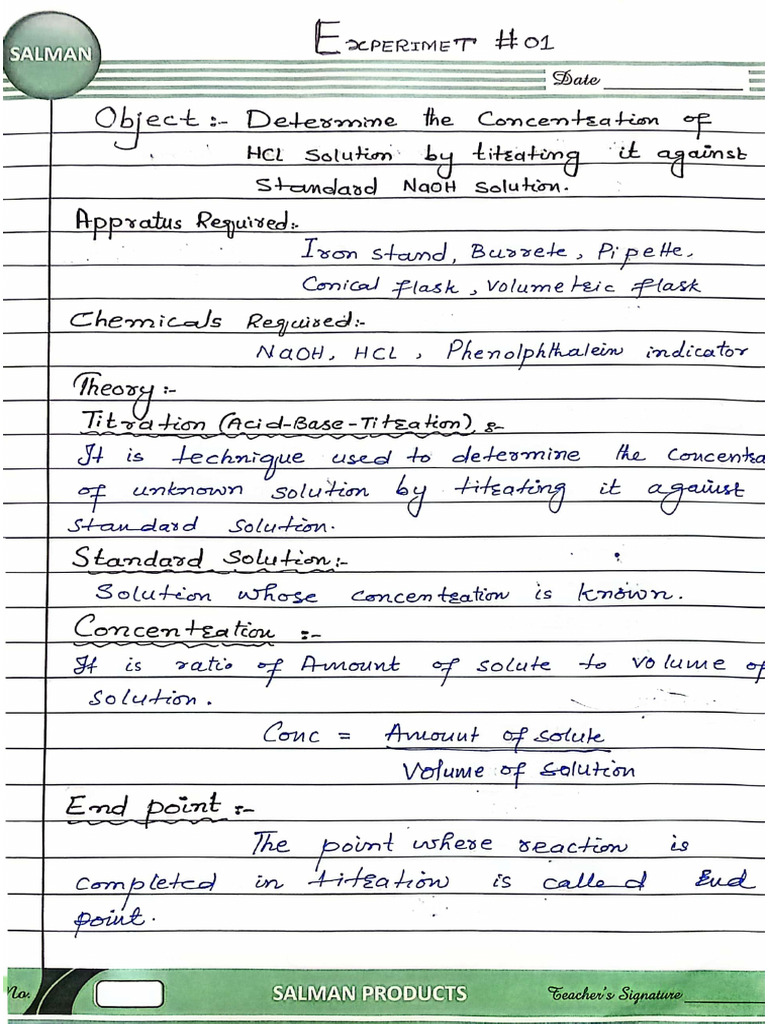 SALMAN
EXPERIMET #01
Date
Object :- Determine the Concentration of
HCL Solution by titrating it against
Standard NaOH Solution.
Appratus Required:-
Iron stand, Burrete, Pipette,
Conical flask, Volumetric flask
Chemicals Required:-
NaOH, HCL, Phenolphthalein indicator
Theory :-
Titration (Acid-Base-Titration) :-
It is technique used to determine the concentra
of unknown solution by titrating it against
standard solution.
Standard Solution:-
Solution whose concentration is known.
Concentration :-
It is ratio of Amount of solute to volume of
solution.
Conc = Amount of solute
Volume of solution
End point :-
The point where reaction is
completed in titration is called End
point.
No.
SALMAN PRODUCTS
Teacher's Signature